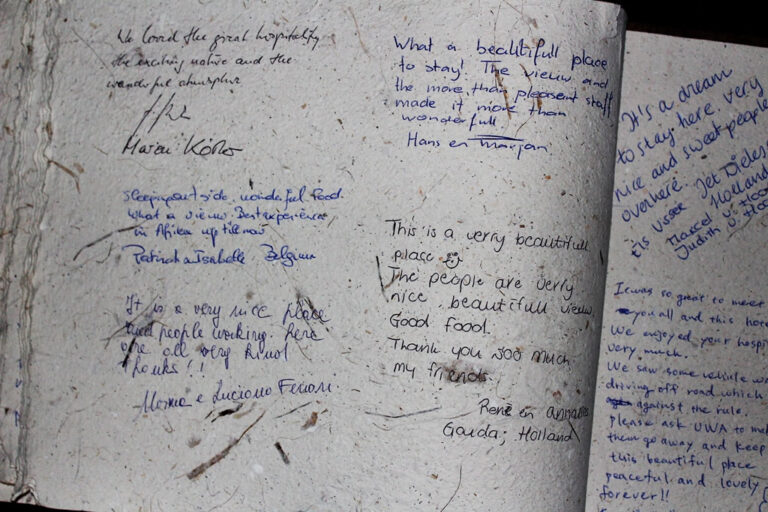 We loved the great hospitality
the exciting nature and the
wonderful atmosphere
Sleeping outside, wonderful food.
What a vieuw. Best experience
in Afrika up till now
Patrick & Isabelle Belgium
It is a very nice place
and people working here
are all very kind
Thanks!!
Luciano Ferrari
What a beautifull place
to stay! The vieuw and
the more than pleasent staff
made it more than
wonderfull
Hans en Marjan
This is a verry beautifull
place
The people are verry
nice. beautifull vieuw.
Good food.
Thank you soo much
my friends
René en
Gouda, Holland
It's a dream
to stay here. Very
nice and sweet people
overhere.
Holland
Marcel
Judith
It was so great to meet
you all and this
We enjoyed your
very much.
We saw some vehicle
driving off road which
against the rule.
please ask UWA to
them go away and keep
this beautiful place
peaceful and lovely
forever!!